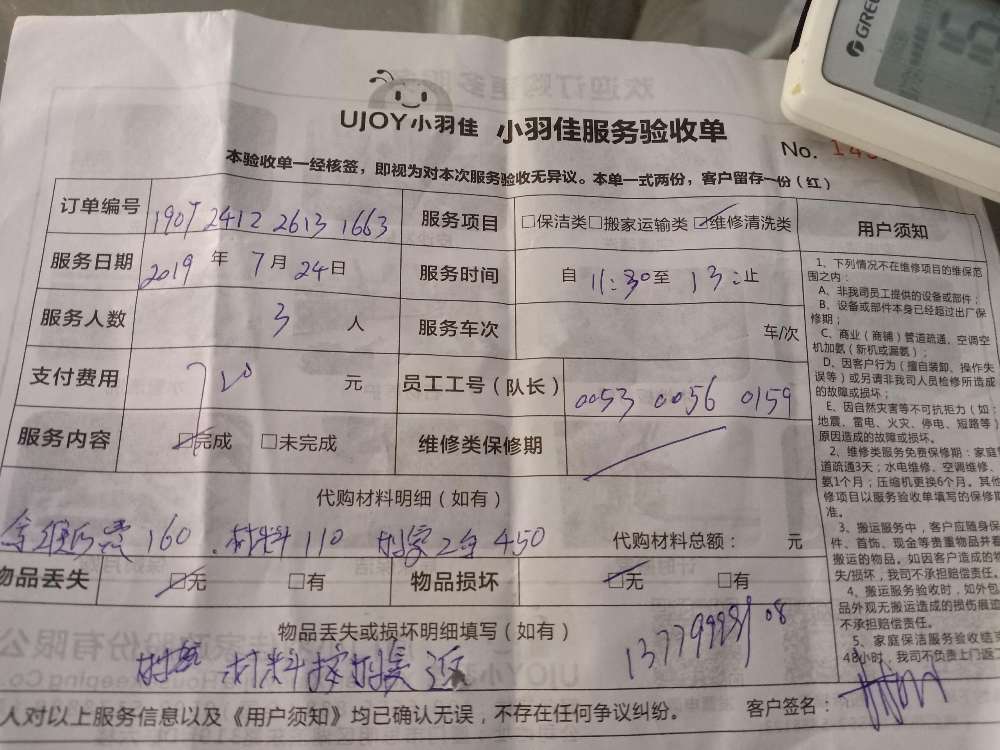 GREE
UJOY小羽佳 小羽佳服务验收单
No. 14
本验收单一经核签，即视为对本次服务验收无异议。本单一式两份，客户留存一份（红）
订单编号 1907 2412 2613 1663 服务项目 □保洁类□搬家运输类☑维修清洗类 用户须知
服务日期 2019 年 7 月 24 日 服务时间 自 11:30 至 13: 止
服务人数 3 人 服务车次 车/次
支付费用 720 元 员工工号（队长） 0053 0056 0159
服务内容 ☑完成 □未完成 维修类保修期
代购材料明细（如有）
160 . 材料 110 450 代购材料总额： 元
物品丢失 ☑无 □有 物品损坏 ☑无 □有
物品丢失或损坏明细填写（如有）
材料
人对以上服务信息以及《用户须知》均已确认无误，不存在任何争议纠纷。 客户签名：
1、下列情况不在维修项目的维保范
围之内：
A、非我司员工提供的设备或部件；
B、设备或部件本身已经超过出厂保
修期；
C、商业（商铺）管道疏通、空调空
机加氨（新机或漏氨）；
D、因客户行为（擅自装卸、操作失
误等）或另请非我司人员检修所造成
的故障或损坏；
E、因自然灾害等不可抗拒力（如：
地震、雷电、火灾、停电、短路等）
原因造成的故障或损坏。
2、维修类服务免费保修期：家庭
道疏通3天；水电维修、空调维修、
氨1个月；压缩机更换6个月。其他
修项目以服务验收单填写的保修期
准。
3、搬运服务中，客户应随身保
件、首饰、现金等贵重物品并看
搬运的物品。如因客户造成的
失/损坏，我司不承担赔偿责任。
4、搬运服务验收时，如外包
品外观无搬运造成的损伤痕迹
不承担赔偿责任。
5、家庭保洁服务验收
48小时，我司不负责上门返工